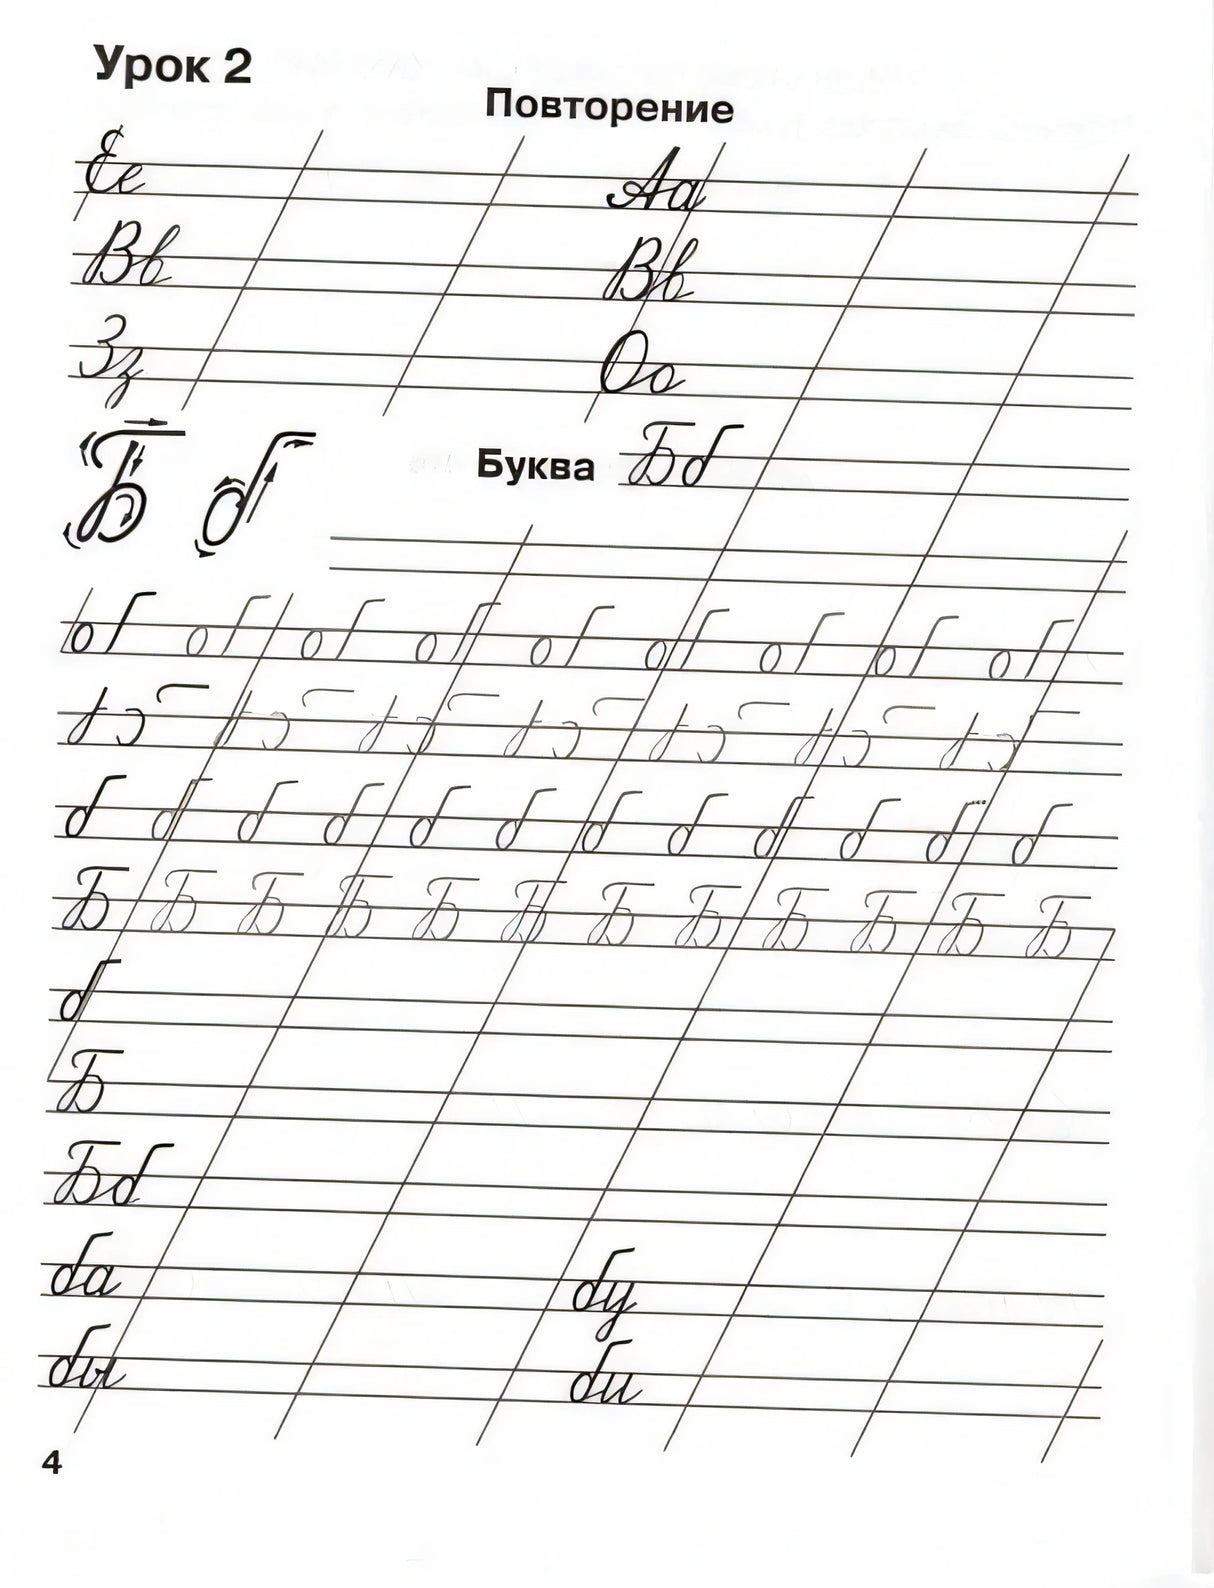 Урок 2
Повторение
Ее Аа
Вв Вв
Зз Оо
Б б
Буква Бб
б б б б б б б б б б б б
Б Б Б Б Б Б Б Б Б Б Б Б
б
Б
Бб
ба бу
бы би
4